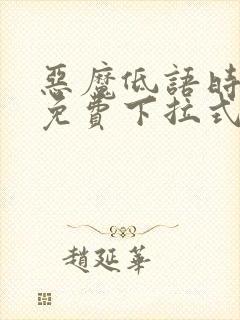 惡魔低語時
免費下拉式
趙延華